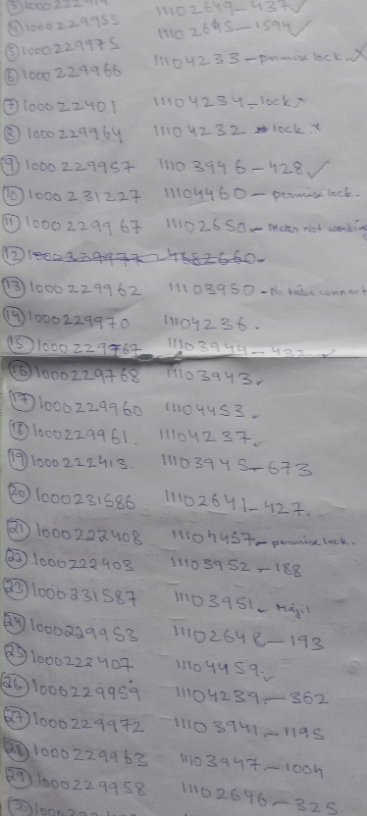 ③ 1000222919 11102649-437 ✓
④ 1000229955 11102645-1594 ✓
⑤ 1000229975 11104233-permise lock ✓
⑥ 1000229966
⑦ 100022401 11104234-lock x
⑧ 1000229964 11104232 lock.x
⑨ 1000229957 11103946-428 ✓
⑩ 1000231227 11104460-permise lock.
⑪ 1000229967 11102650-Meter not working
⑫
⑬ 1000229962 11103950-No
⑭ 1000229970 11104236.
⑮ 1000229767 11103944-432 ✓
⑯ 1000229768 11103943 ✓
⑰ 1000229960 11104453.
⑱ 1000229961. 11104237 ✓
⑲ 1000222413. 11103945-673
⑳ 1000231586 11102641-427.
㉑ 1000222408 11104457-permise lock.
㉒ 1000222403 11103952-188
㉓ 1000231587 11103951-
㉔ 1000229953 11102648-193
㉕ 1000222407 11104459 ✓
㉖ 1000229959 11104239-362
㉗ 1000229972 11103941-1195
㉘ 1000229963 11103947-1004
㉙ 1000229958 11102646-325
㉚